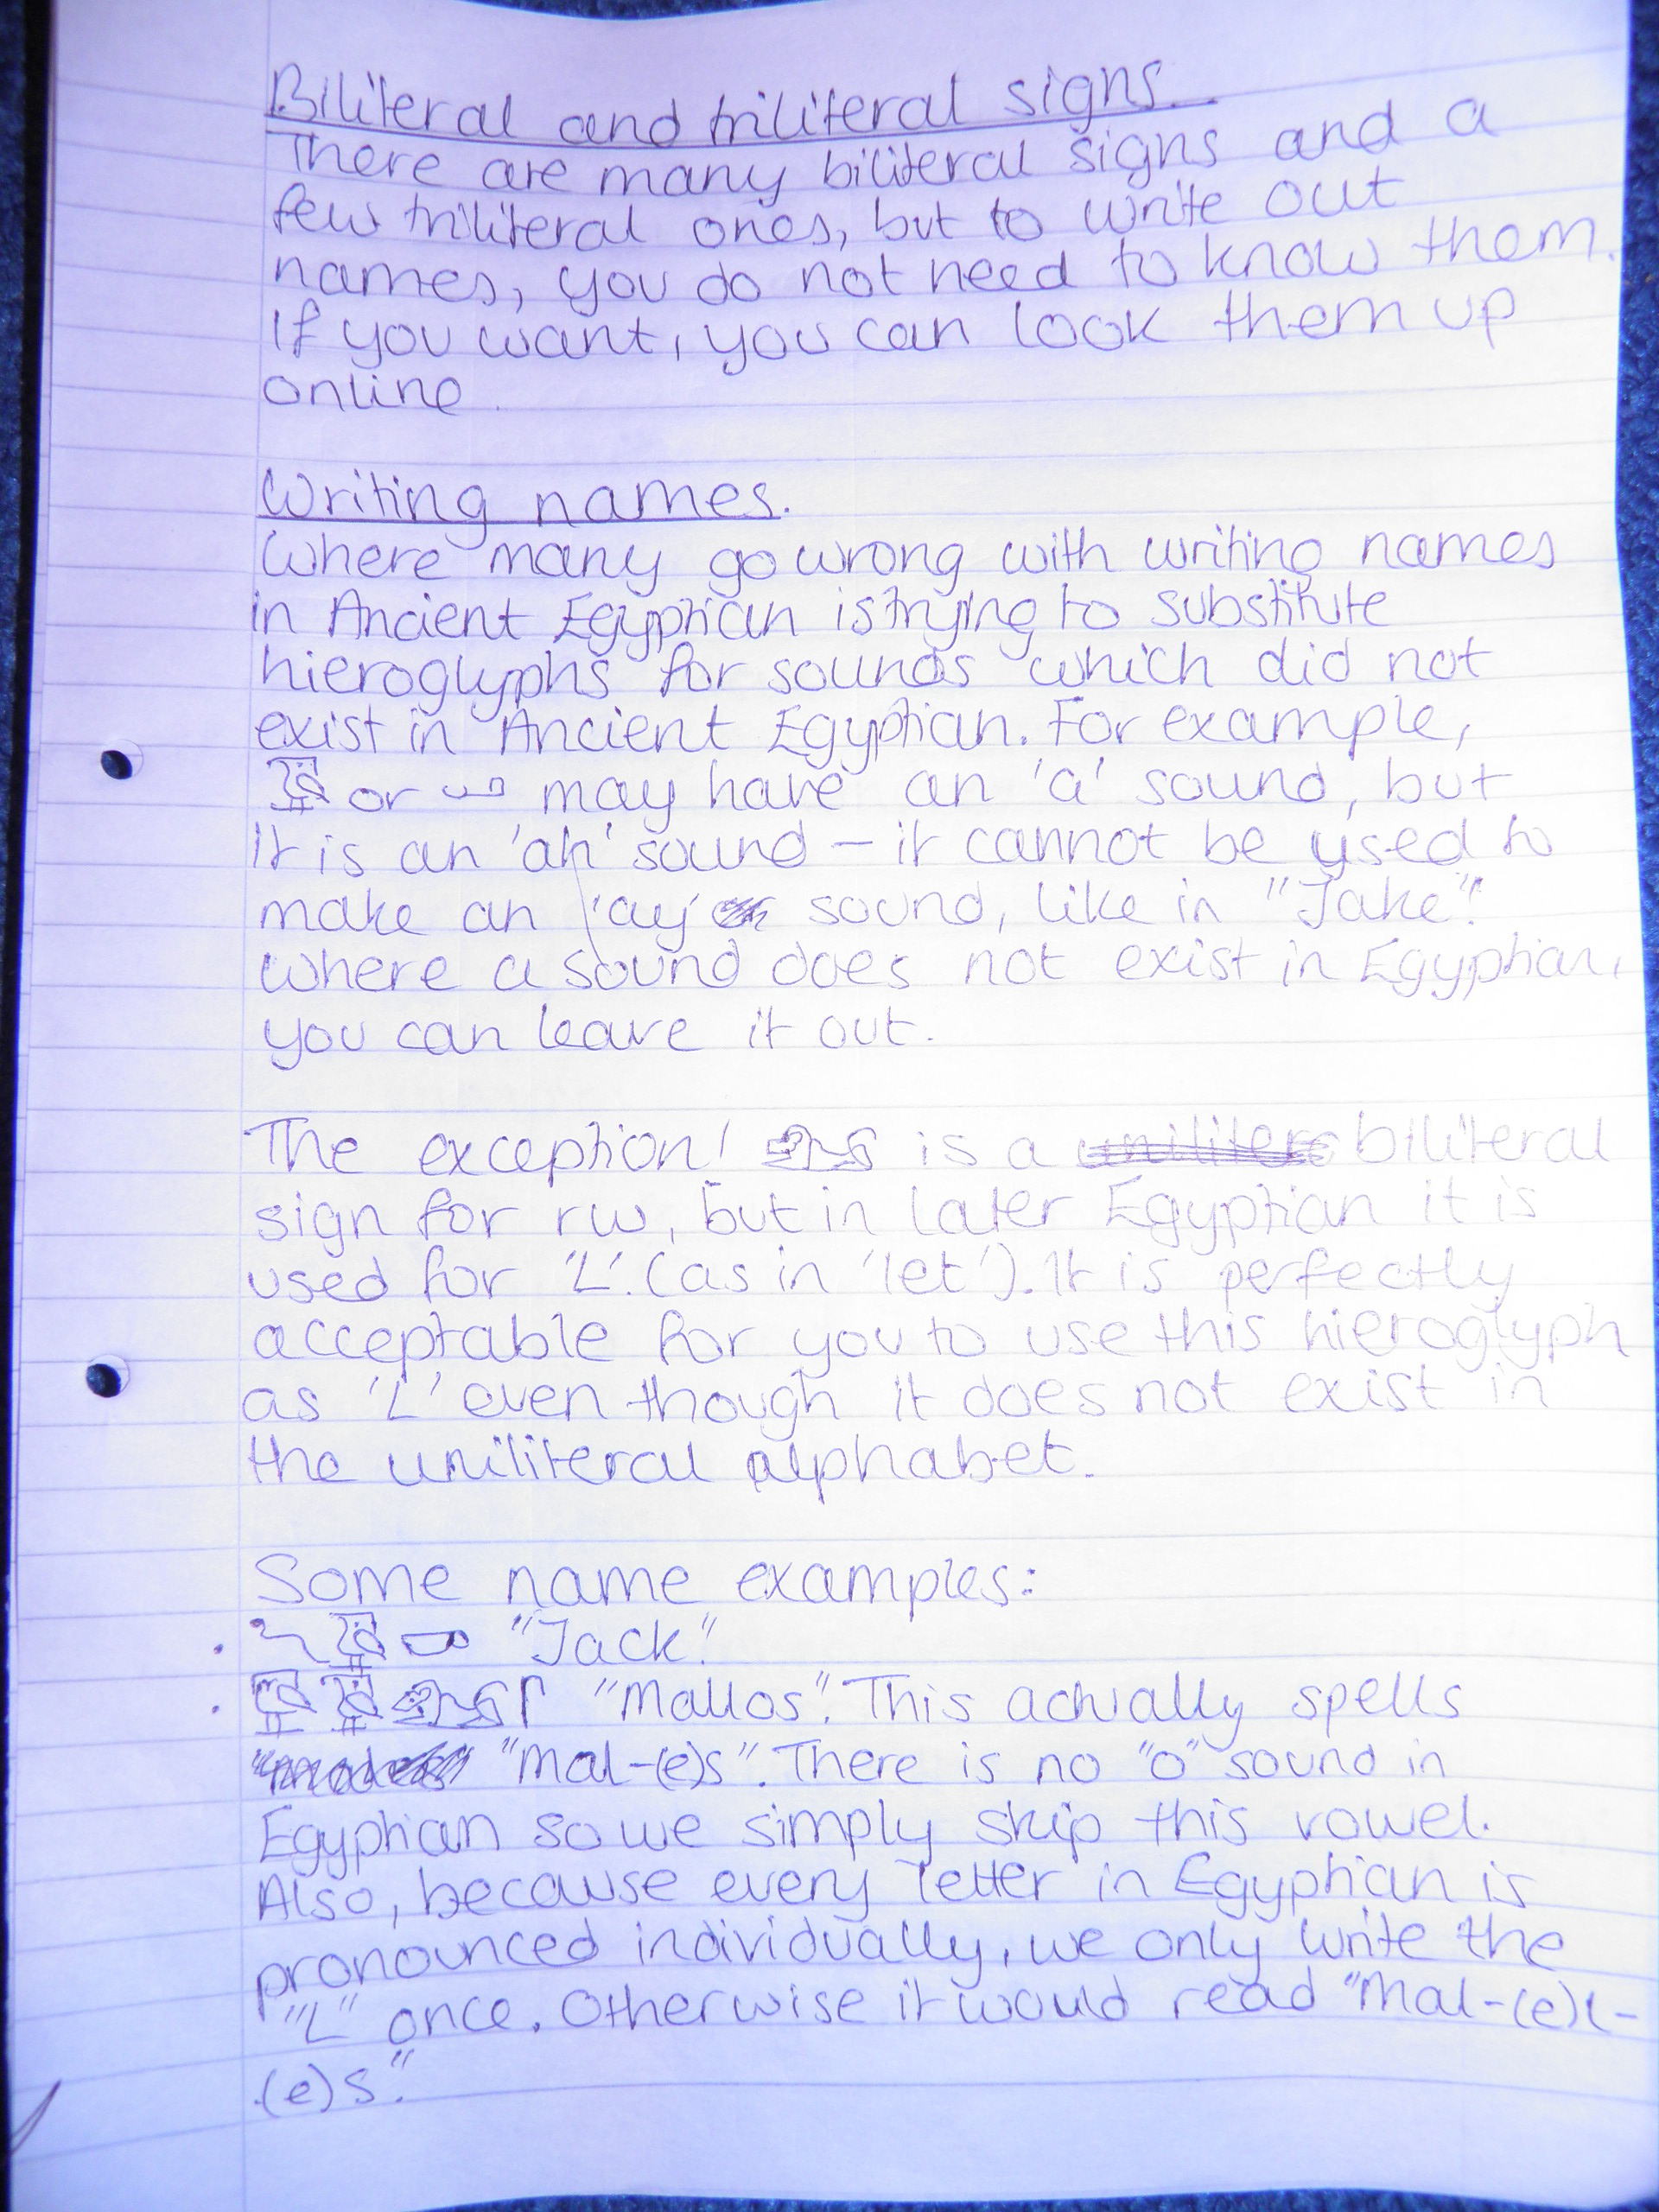 Biliteral and triliteral signs.
There are many biliteral signs and a
few triliteral ones, but to write out
names, you do not need to know them.
If you want, you can look them up
online.
Writing names.
Where many go wrong with writing names
in Ancient Egyptian is trying to substitute
hieroglyphs for sounds which did not
exist in Ancient Egyptian. For example,
or may have an 'a' sound, but
it is an 'ah' sound – it cannot be used to
make an 'ay' sound, like in "Jake".
Where a sound does not exist in Egyptian,
you can leave it out.
The exception! is a biliteral
sign for rw, but in later Egyptian it is
used for 'L'. (as in 'let'). It is perfectly
acceptable for you to use this hieroglyph
as 'L' even though it does not exist in
the uniliteral alphabet.
Some name examples:
"Jack".
"Mallos". This actually spells
"Mal-(e)s". There is no "o" sound in
Egyptian so we simply skip this vowel.
Also, because every letter in Egyptian is
pronounced individually, we only write the
"L" once. Otherwise it would read "Mal-(e)l-
(e)s."